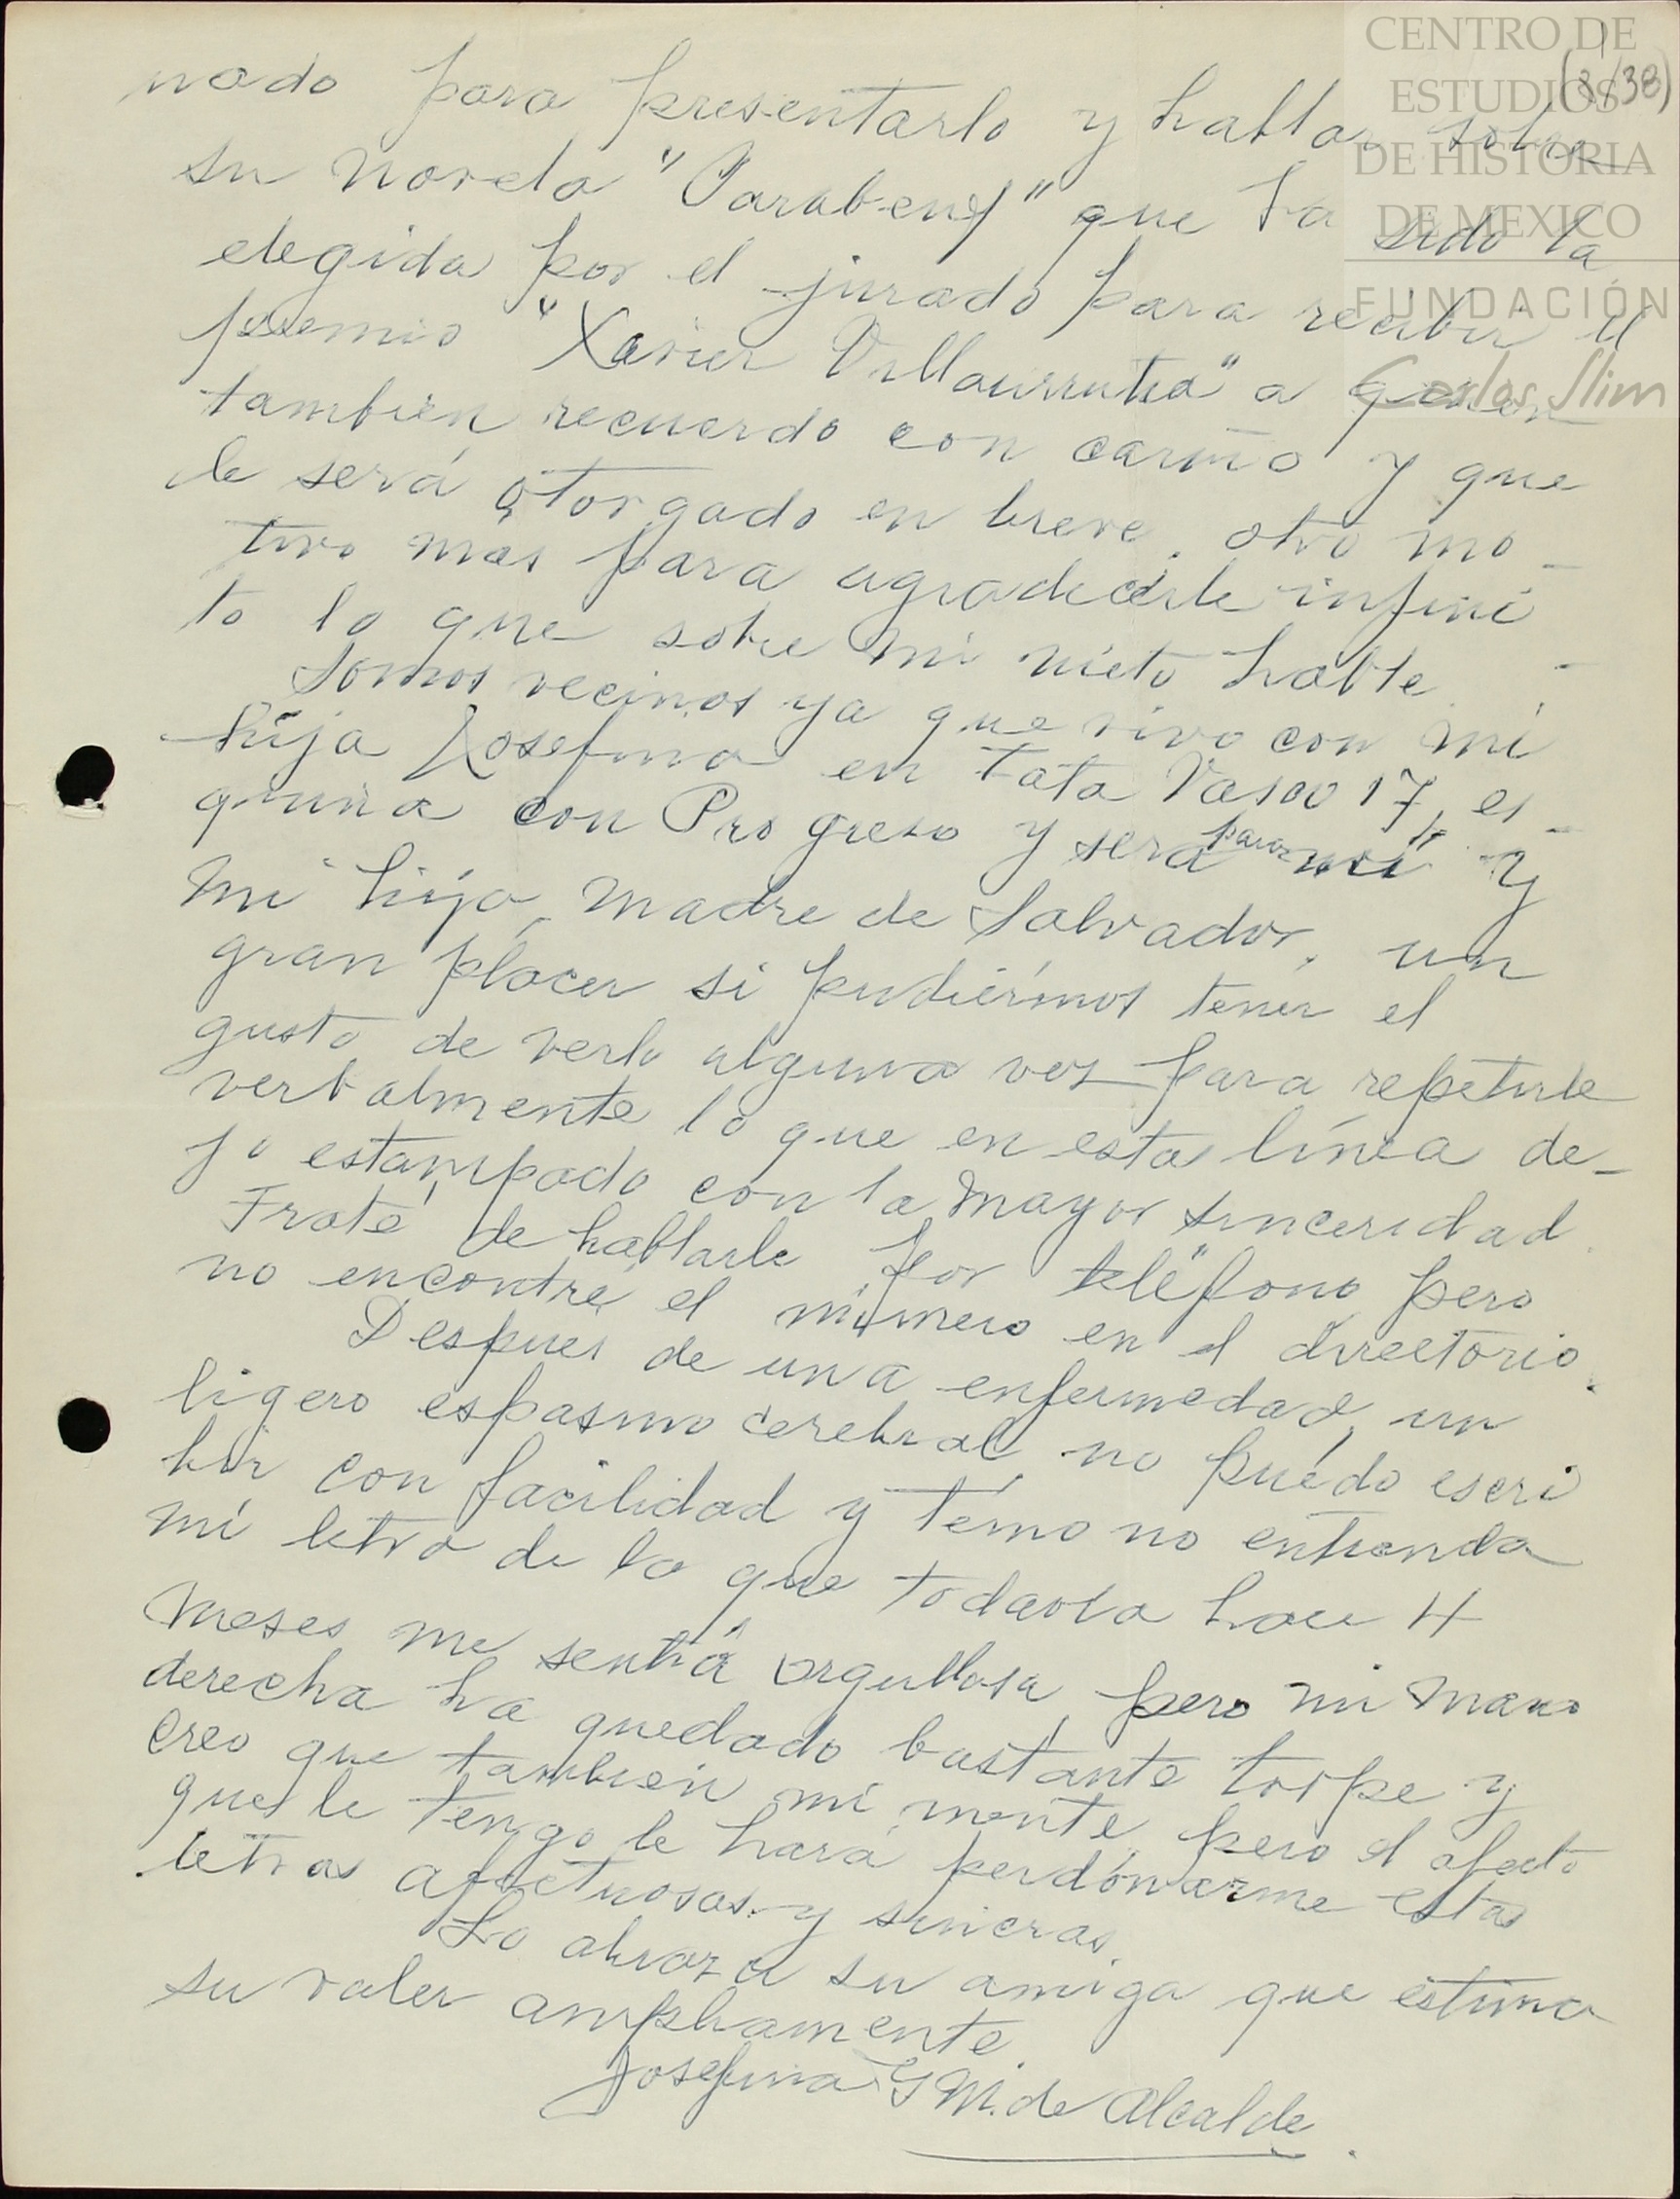 CENTRO DE
ESTUDIOS
DE HISTORIA
DE MEXICO
FUNDACIÓN
Carlos Slim
(3/38)
nado para presentarlo y hablar sobre
su novela "Farabeuf" que ha sido la
elegida por el jurado para recibir el
premio "Xavier Villaurrutia" a quien
tambien recuerdo con cariño y que
le será otorgado en breve. otro mo_
tivo más para agradecerle infini_
to lo que sobre mi nieto hable.
Somos vecinos ya que vivo con mi
hija Josefina en Tata Vasco 17, es_
quina con Progreso y será para mí y
mi hija, madre de Salvador, un
gran placer si pudiérmos tener el
gusto de verlo alguna vez para repetirle
verbalmente lo que en esta línea de_
jo estampado con la mayor sinceridad.
Traté de hablarle por teléfono pero
no encontré el número en el directorio.
Despues de una enfermedad, un
ligero espasmo cerebral, no puédo escri
bir con facilidad y témo no entienda
mi letra de la que todavía hace 4
meses me sentiá orgullosa, pero mi mano
derecha ha quedado bastante torpe y
creo que también mi mente, pero el afecto
que le tengo le hará perdónarme estas
letras afectuosas y sinceras.
Lo abraza su amiga que estima
su valer ampliamente.
Josefina G M. de Alcalde.